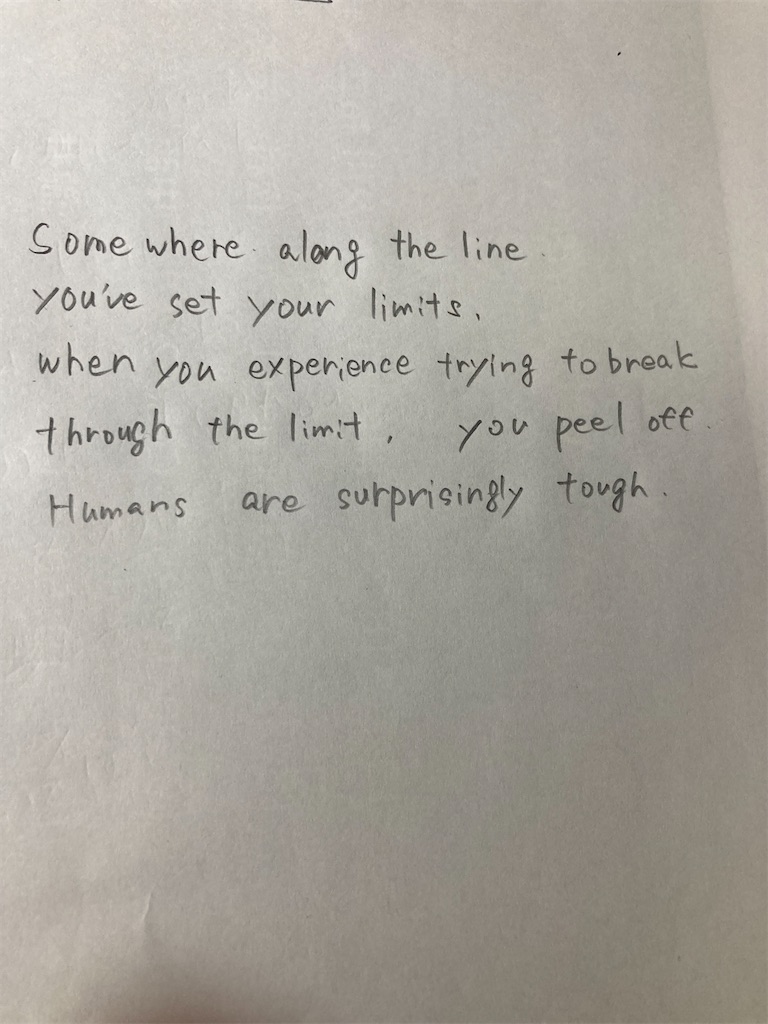 Somewhere along the line.
you've set your limits.
when you experience trying to break
through the limit, you peel off.
Humans are surprisingly tough.